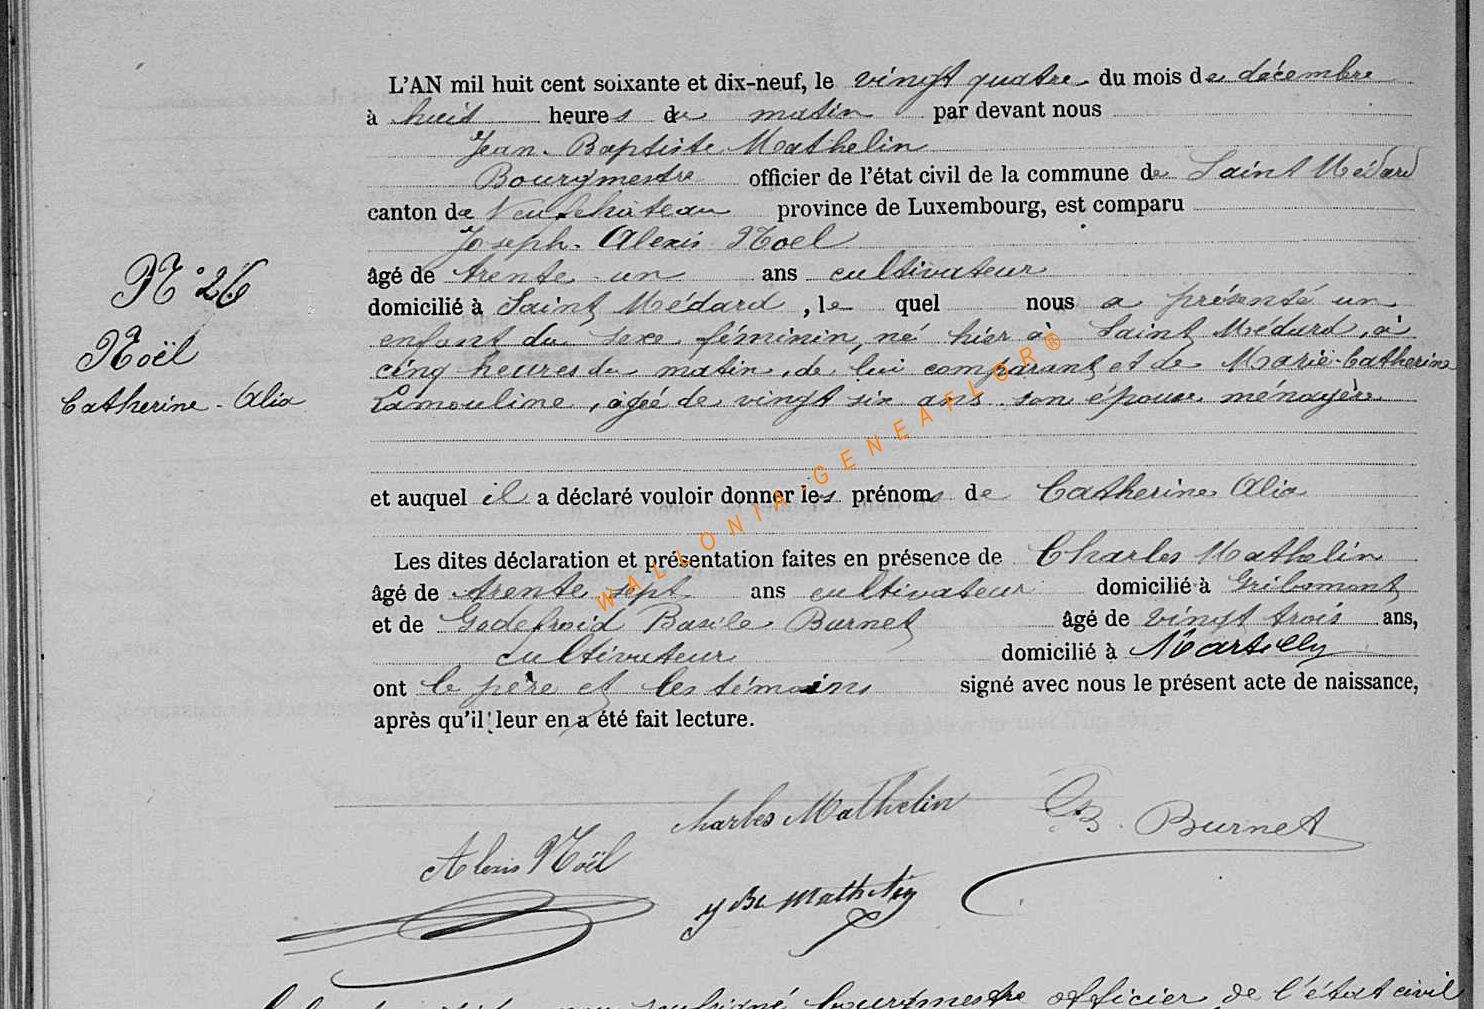 L'AN mil huit cent soixante et dix-neuf, le vingt quatre du mois de décembre
à huit heures du matin par devant nous
Jean-Baptiste Mathelin
Bourgmestre officier de l'état civil de la commune de Saint Médard
canton de Neufchâteau province de Luxembourg, est comparu
Joseph-Alexis Noel
âgé de trente-un ans cultivateur
domicilié à Saint Médard, le quel nous a présenté un
enfant du sexe féminin, né hier à Saint Médard, à
cinq heures du matin, de lui comparant et de Marie-Catherine
Lamouline, agée de vingt six ans son épouse ménagère
et auquel il a déclaré vouloir donner les prénoms de Catherine Alia
Les dites déclaration et présentation faites en présence de Charles Mathelin
âgé de trente sept ans cultivateur domicilié à Gribomont
et de Godefroid Basile Burnet âgé de vingt trois ans,
cultivateur domicilié à Martilly
ont le père et les témoins signé avec nous le présent acte de naissance,
après qu'il leur en a été fait lecture.
N° 26
Noël
Catherine-Alia
WALLONIA-GENEAFLOR®
Charles Mathelin
GB. Burnet
Alexis Noël
JBte Mathelin
bourgmestre officier de l'état civil